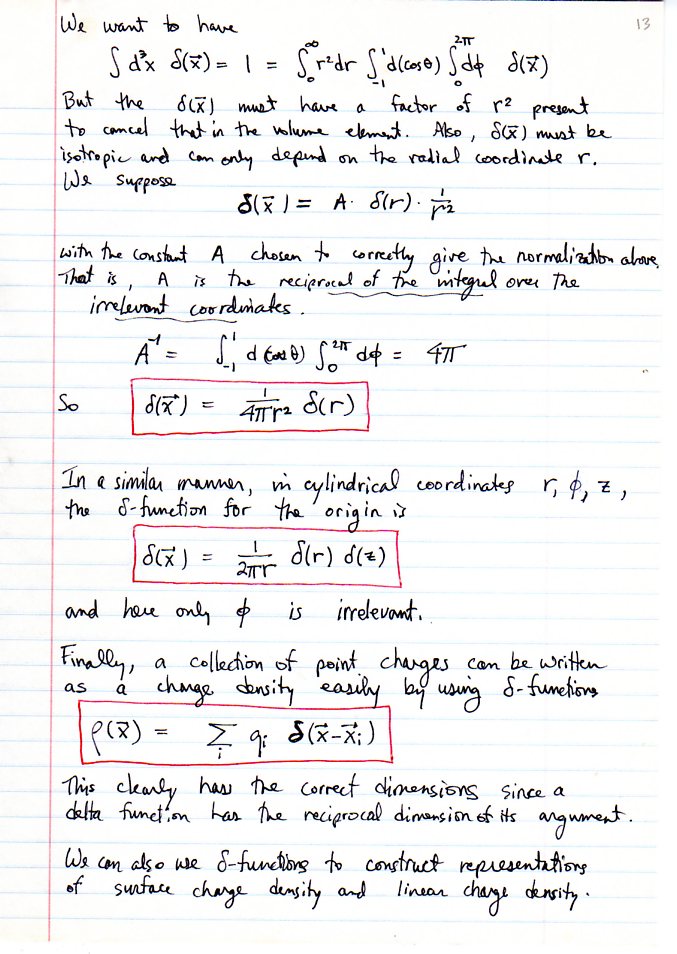 13
We want to have
∫ d³x δ(x⃗) = 1 = ∫₀^∞ r²dr ∫₋₁¹ d(cosθ) ∫₀^2π dϕ δ(x⃗)
But the δ(x⃗) must have a factor of r² present
to cancel that in the volume element. Also, δ(x⃗) must be
isotropic and can only depend on the radial coordinate r.
We suppose
δ(x⃗) = A · δ(r) · 1/r²
with the constant A chosen to correctly give the normalization above.
That is, A is the reciprocal of the integral over the
irrelevant coordinates.
A⁻¹ = ∫₋₁¹ d(cosθ) ∫₀^2π dϕ = 4π
So δ(x⃗) = 1/4πr² δ(r)
In a similar manner, in cylindrical coordinates r, ϕ, z,
the δ-function for the origin is
δ(x⃗) = 1/2πr δ(r) δ(z)
and here only ϕ is irrelevant.
Finally, a collection of point charges can be written
as a charge density easily by using δ-functions
ρ(x⃗) = Σᵢ qᵢ δ(x⃗-x⃗ᵢ)
This clearly has the correct dimensions since a
delta function has the reciprocal dimension of its argument.
We can also use δ-functions to construct representations
of surface charge density and linear charge density.